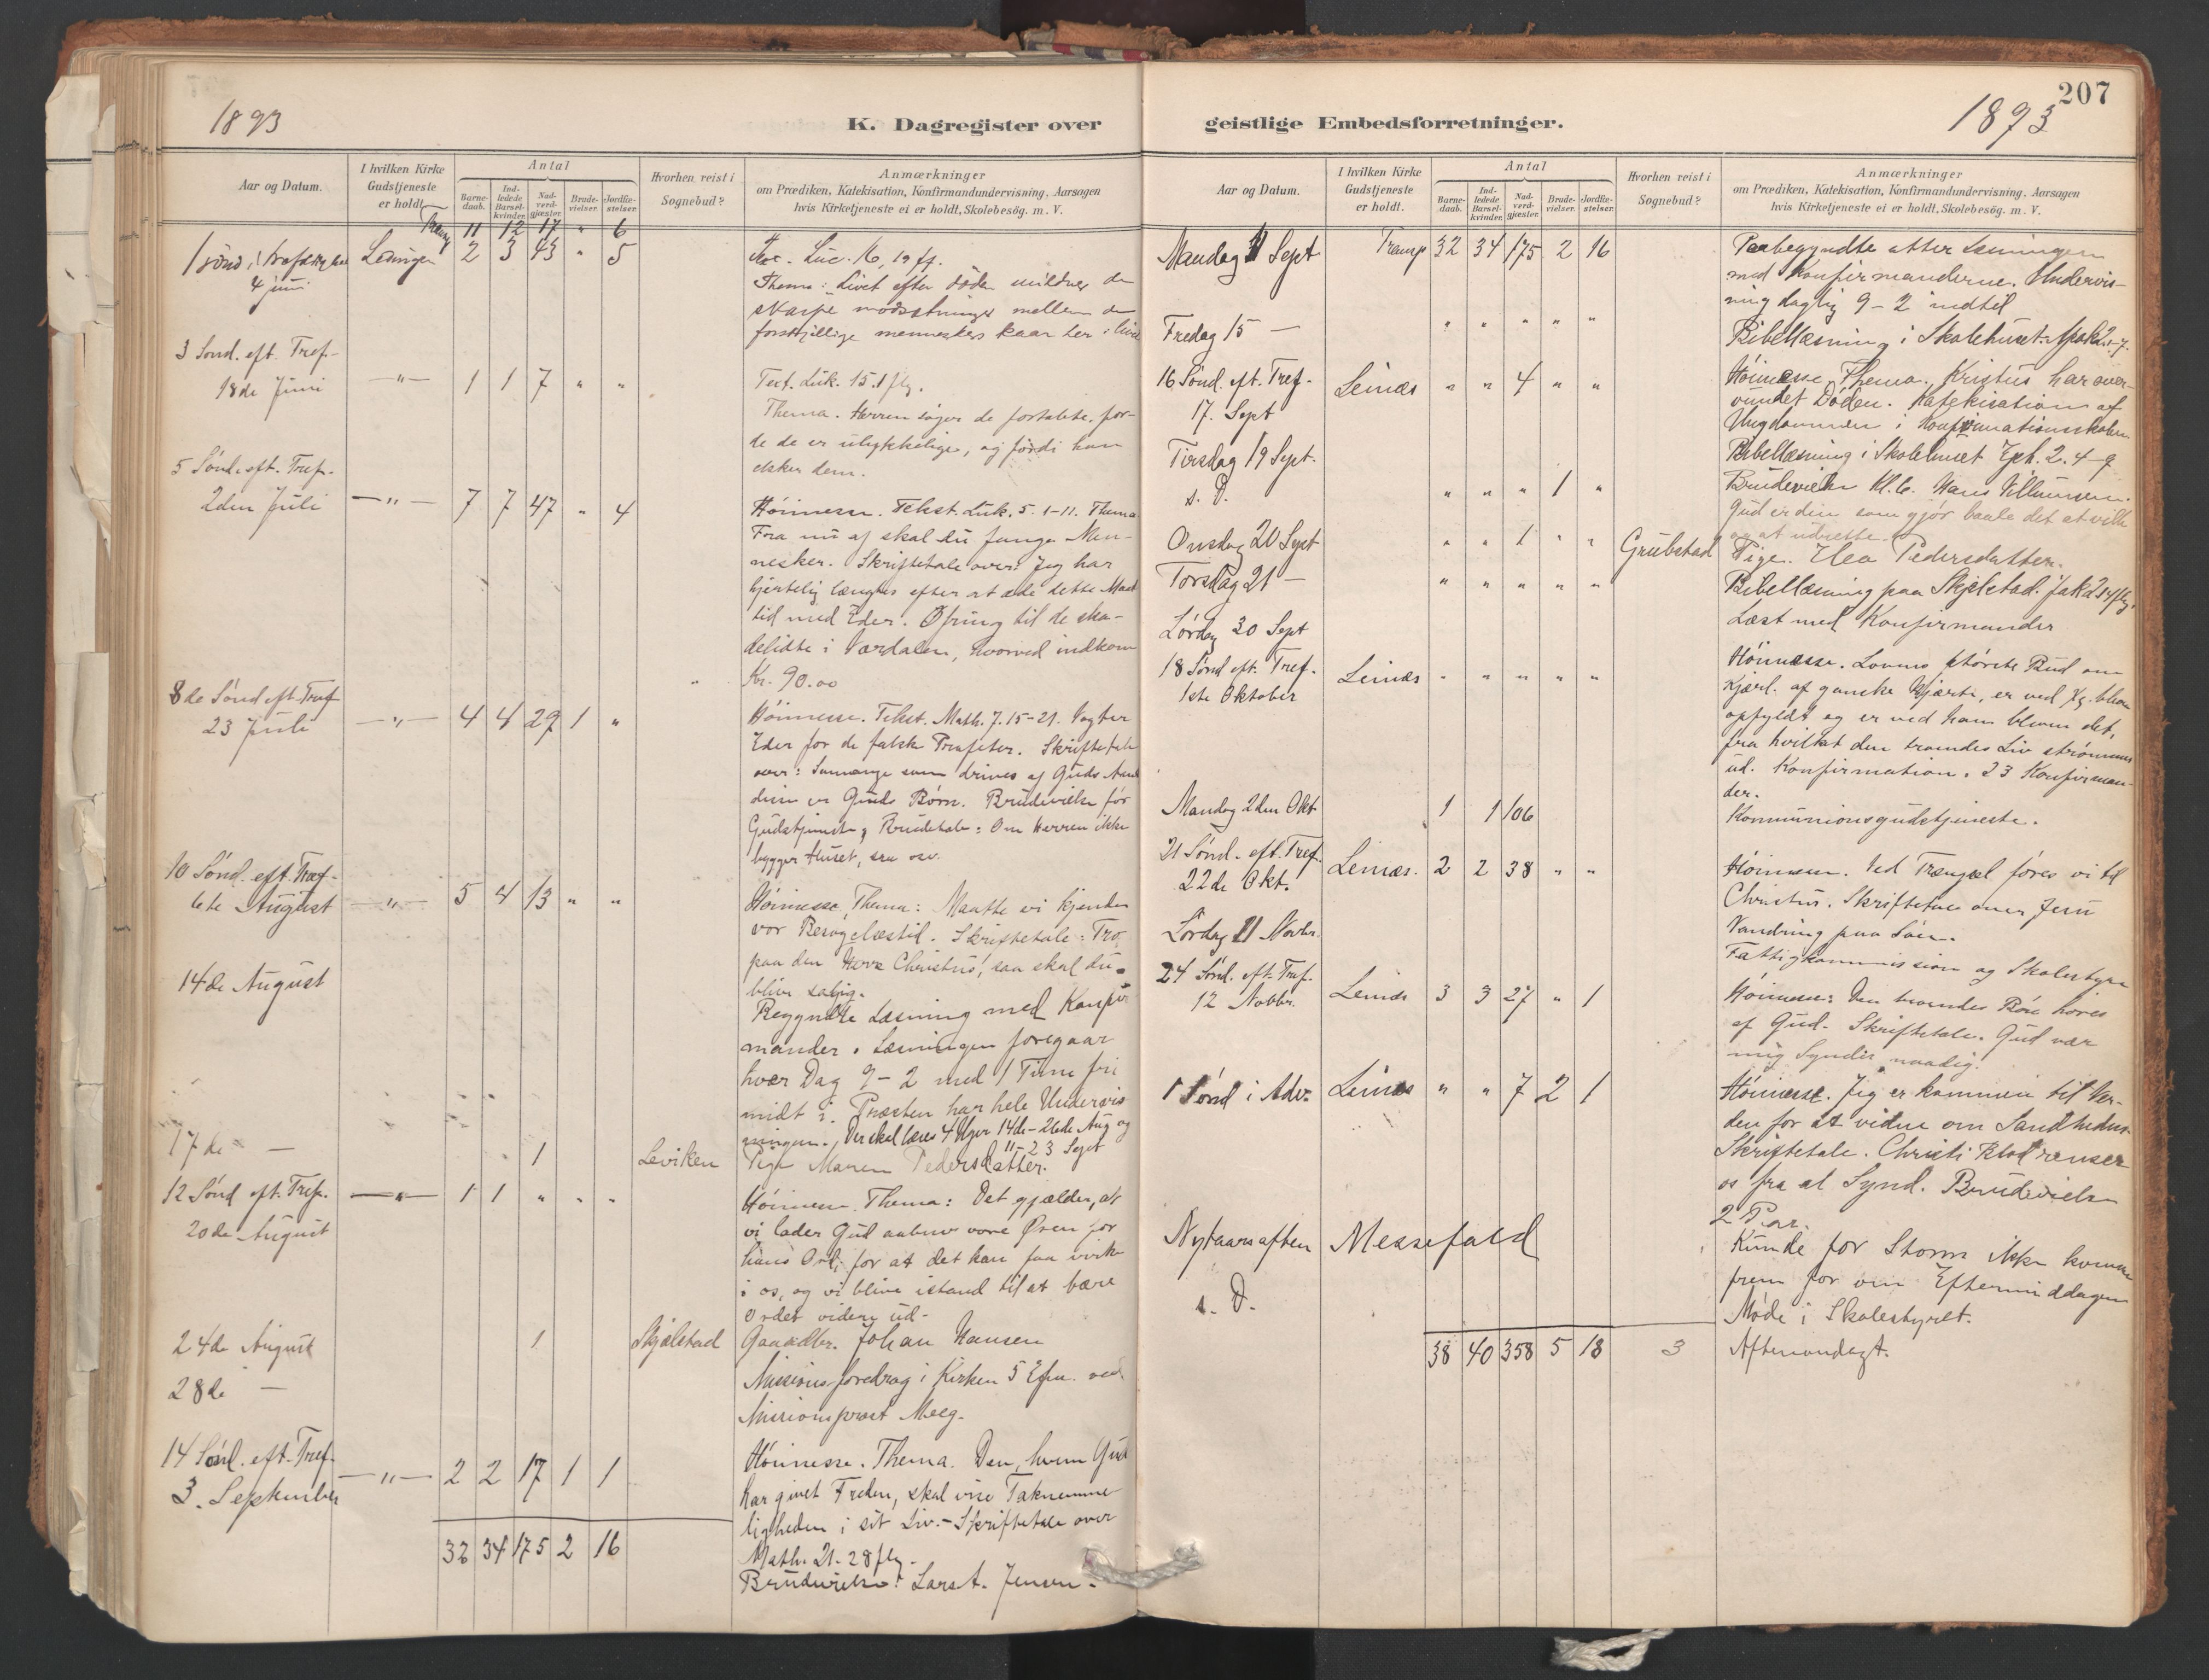 1893
K. Dagregister over
Aar og Datum.
I hvilken Kirke
Gudstjeneste
er holdt.
Antal
Barne-
daab.
Ind-
ledede
Barsel-
kvinder.
Nad-
verd-
gjæster.
Brude-
vielser.
Jordfæ-
stelser.
Hvorhen reist i
Sognebud?
Anmærkninger
om Prædiken, Katekisation, Konfirmandundervisning. Aarsagen
hvis Kirketjeneste ei er holdt, Skolebesög. m. V.
Transp 11 12 17 " 6
4 juni
2 3 43 " 5
Luc. 16, 19 ff.
Thema: Livet efter döden
skarpe modsetninger mellem de
forskjellige menneskers kaar her i livet
3 Sönd. eft. Tref.
18de Juni
—"— 1 1 7 " "
Text. Luk. 15. 1 flg.
Thema. Herren söger de fortabte, for-
de de er ulykkelige, og fordi han
elsker dem.
5 Sönd. eft. Tref.
2den Juli
—"— 7 7 47 " 4
Höimesse. Tekst. Luk. 5. 1-11. Thema
Fra nu af skal du fange Men-
nesker. Skriftetale over: Jeg har
hjertelig længtes efter at æde dette Maal
tid med Eder. Ofring til de ska-
delidte i Værdalen, hvorved indkom
Kr. 90.00
8de Sönd eft. Tref
23 Juli
—"— 4 4 29 1 "
Höimesse. Tekst. Math. 7. 15-21. Vogter
Eder for de falske Profeter. Skriftetale
over: Saamange som drives af Guds Aand
disse er Guds Börn. Brudevielse för
Gudstjeneste, Brudetale: Om Herren ikke
bygger Huset, saa osv.
10 Sönd. eft. Tref.
6te August
—"— 5 4 13 " "
Höimesse, Thema: Maatte vi kjende
vor Besögelsestid. Skriftetale: Tro
paa den Herre Christus, saa skal du
blive salig.
14de August
Begyndte Læsning med Konfir
mander. Læsningen foregaar
hver Dag 9-2 med 1 Time fri
midt i. Præsten har hele Undervis
ningen. Der skal læses 4 Uger 14de-26de Aug og
11-23 Sept
17de —
1
Leviken
Pige Maren Pedersdatter.
12 Sönd eft. Tref.
20de August
—"— 1 1 " " "
Höimesse. Thema: Det gjælder, at
vi lader Gud aabne vore Ören for
hans Ord, for at det kan faa virke
i os, og vi blive istand til at bære
Ordet videre ud.
24de August
1
Skjelstad
Johan Hansen
28de —
Missionsforedrag i Kirken 5 Efm. ved
Missionsprest Meeg.
14 Sönd. eft. Tref.
3. September
—"— 2 2 17 1 1
Höimesse. Thema. Den, hvem Gud
har givet Freden, skal vise Taknemme-
ligheden i sit Liv.- Skriftetale over
Math. 21. 28 flg.
Brudevielse: Jensen.
32 34 175 2 16
207
1893
geistlige Embedsforretninger.
Aar og Datum.
I hvilken Kirke
Gudstjeneste
er holdt.
Antal
Barne-
daab.
Ind-
ledede
Barsel-
kvinder.
Nad-
verd-
gjæster.
Brude-
vielser.
Jordfæ-
stelser.
Hvorhen reist i
Sognebud?
Anmærkninger
om Prædiken, Katekisation, Konfirmandundervisning. Aarsagen
hvis Kirketjeneste ei er holdt, Skolebesög. m. V.
Mandag 11 Sept
Transp 32 34 175 2 16
Paabegyndte atter Læsningen
med Konfirmanderne. Undervis-
ning daglig 9-2 indtil
Fredag 15 —
" " " " "
Bibellæsning i Skolehuset.
16 Sönd. eft. Tref.
17. Sept
Leines " " 4 " "
Höimesse. Thema. Kristus har over-
vundet Döden. Katekisation af
Ungdommen i Konfirmationsskolen
Tirsdag 19 Sept.
Bibellæsning i Skolehuset Eph. 2. 4-9
s. D.
" " " 1 "
Brudevielse Kl. 6. Hans
Gud er den som gjör baade det at ville
og at udrette.
Onsdag 20 Sept
" " 1 " "
Grubstad
Pige. Pedersdatter.
Torsdag 21 —
" " " " "
Bibellæsning paa Skjelstad. Jak
Lördag 30 Sept
Læst med Konfirmander
18 Sönd eft. Tref.
1ste Oktober
Leines " " " " "
Höimesse. Lovens störste Bud om
Kjærl. af ganske Hjærte, er ved bleven
opfyldt og er ved ham bleven det,
fra hvilket den troendes Liv strömmer
ud. Konfirmation. 23 Konfirman-
der.
Mandag 2den Okt
1 1 106
Kommunionsgudstjeneste.
21 Sönd. eft. Tref.
22de Okt.
Leines. 2 2 38 " "
Höimesse. Ved Trængsel föres vi til
Christus. Skriftetale over Jesu
Vandring paa Söen.
Lördag 11 Novbr.
Fattigkommission og Skolestyre
24 Sönd. eft. Tref.
12 Novbr.
Leines 3 3 27 " 1
Höimesse: Den troendes Bön höres
af Gud. Skriftetale. Gud vær
mig Synder naadig.
1 Sönd i Adv.
Leines " " 7 2 1
Höimesse. Jeg er kommen til Ver-
den for at vidne om Sandheden.
Skriftetale. Christi Blod renser
os fra al Synd. Brudevielse
2 Par.
Nytaarsaften
Messefald
Kunde for Storm ikke komme
frem för om Eftermiddagen
s. D.
Möde i Skolestyret.
38 40 358 5 18 3